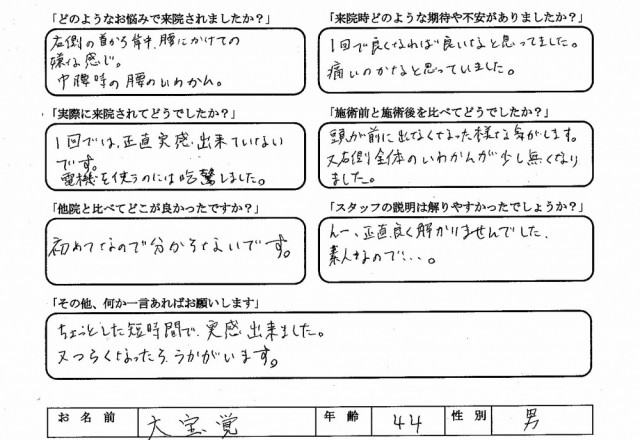 「どのようなお悩みで来院されましたか？」
右側の首から背中、腰にかけての
嫌な感じ。
中腰時の腰のいわかん。
「来院時どのような期待や不安がありましたか？」
1回で良くなれば良いなと思ってました。
痛いのかなと思っていました。
「実際に来院されてどうでしたか？」
1回では、正直実感出来ていない
です。
電機を使うのには吃驚しました。
「施術前と施術後を比べてどうでしたか？」
頭が前に出なくなった様な気がします。
又右側全体のいわかんが少し無くなり
ました。
「他院と比べてどこが良かったですか？」
初めてなので分からないです。
「スタッフの説明は解りやすかったでしょうか？」
んー、正直良く解かりませんでした、
素人なので、、、。
「その他、何か一言あればお願いします」
ちょっとした短時間で、実感出来ました。
又つらくなったら、うかがいます。
お名前 大宝覚 年齢 44 性別 男